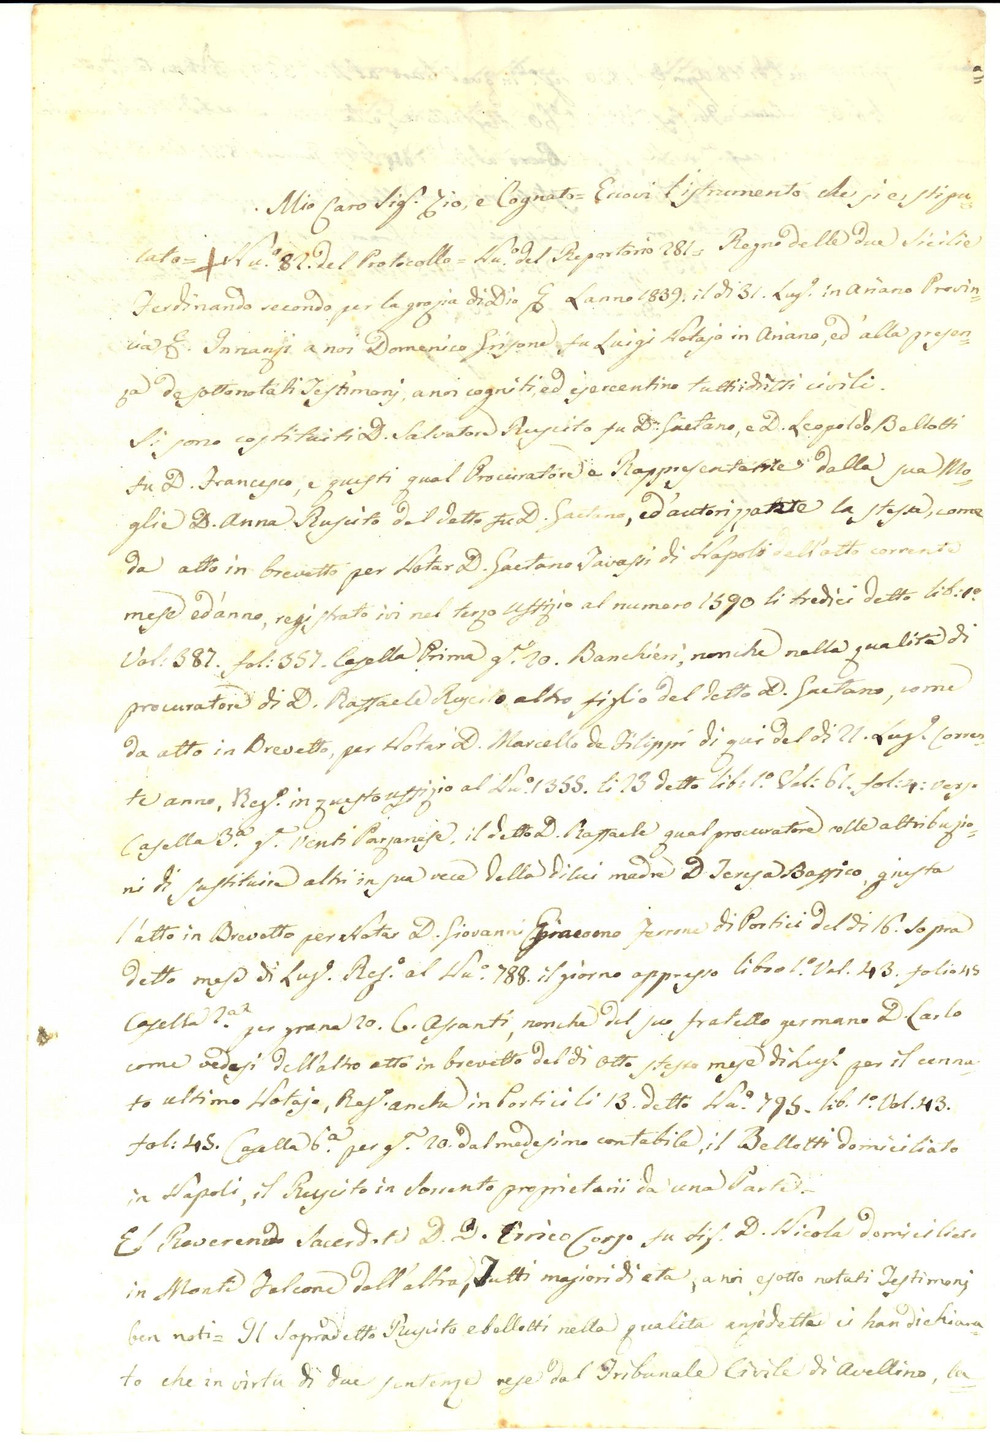 Mio Caro Sig.r Zio, e Cognato = Eccovi l'istrumento che si è stipu=
lato = Nu.o 82. del Protocollo = Nu.o del Repertorio 281 = Regno delle due Sicilie
Ferdinando secondo per la grazia di Dio & L'anno 1839. il di 31. Lug.o in Ariano Provin=
cia &. Innanzi a noi Domenico Grisone fu Luigi Notajo in Ariano, ed alla presen=
za de sottonotati Testimonj, a noi cogniti, ed esercentino tutti i dritti civili.
Si sono costituiti D. Salvatore Ruscito fu D.n Gaetano, e D. Leopoldo Bellotti
fu D. Francesco, e questi qual Procuratore e Rappresentante dalla sua Mo=
glie D. Anna Ruscito del detto fu D. Gaetano, ed autorizzante la stessa, come
da atto in brevetto per Notar D. Gaetano Tavassi di Napoli dell'atto corrente
mese ed anno, registrato ivi nel terzo uffizio al numero 1590 li tredici detto lib: 1.o
Vol: 387. fol: 357. Casella Prima g.a 20. Banchieri, nonche nella qualità di
procuratore di D. Raffaele Ruscito altro figlio del detto D. Gaetano, come
da atto in Brevetto, per Notar D. Marcello de Filippi di qui del di 21. Lug.o Corren=
te anno, Reg.o in questo uffizio al Nu.o 1355. li 23 detto lib: 1.o Vol: 61. fol: 4: verso
Casella 3.a g.a Venti Parzanese, il detto D. Raffaele qual procuratore colle attribuzio=
ni di sustituire altri in sua vece della di lui madre D Teresa Bassico, giusta
l'atto in Brevetto per Notar D. Giovanni Giacomo Ferrone di Portici del di 16. sopra
detto mese di Lug.o Reg.o al Nu.o 788. il giorno appresso libro 1.o Vol. 43. folio 45
Casella 2.a per grana 20. C. Asanti, nonche del suo fratello germano D. Carlo
come vedesi dell'altro atto in brevetto del di otto stesso mese di Lug.o per il cenna=
to ultimo Notajo, Reg.o anche in Portici li 13. detto Nu.o 795. lib. 1.o Vol. 43.
fol: 45. Casella 6.a per g.a 20. dal medesimo contabile, il Bellotti domiciliato
in Napoli, il Ruscito in Sorrento proprietarii da una Parte =
E il Reverendo Sacerdote D. D. Errico Corso fu Sig. D. Nicola domiciliato
in Monte Falcone dall'altra, Tutti majori di età, a noi e sotto notati Testimonj
ben noti = Il sopradetto Ruscito e bellotti nella qualità anzidetta ci han dichiara=
to che in virtù di due sentenze rese dal Tribunale Civile di Avellino, la=